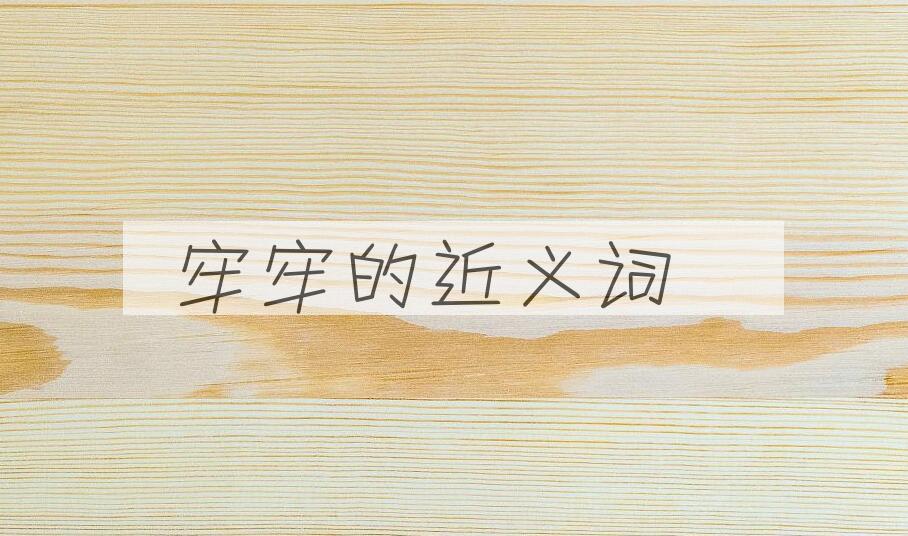 牢牢的近义词